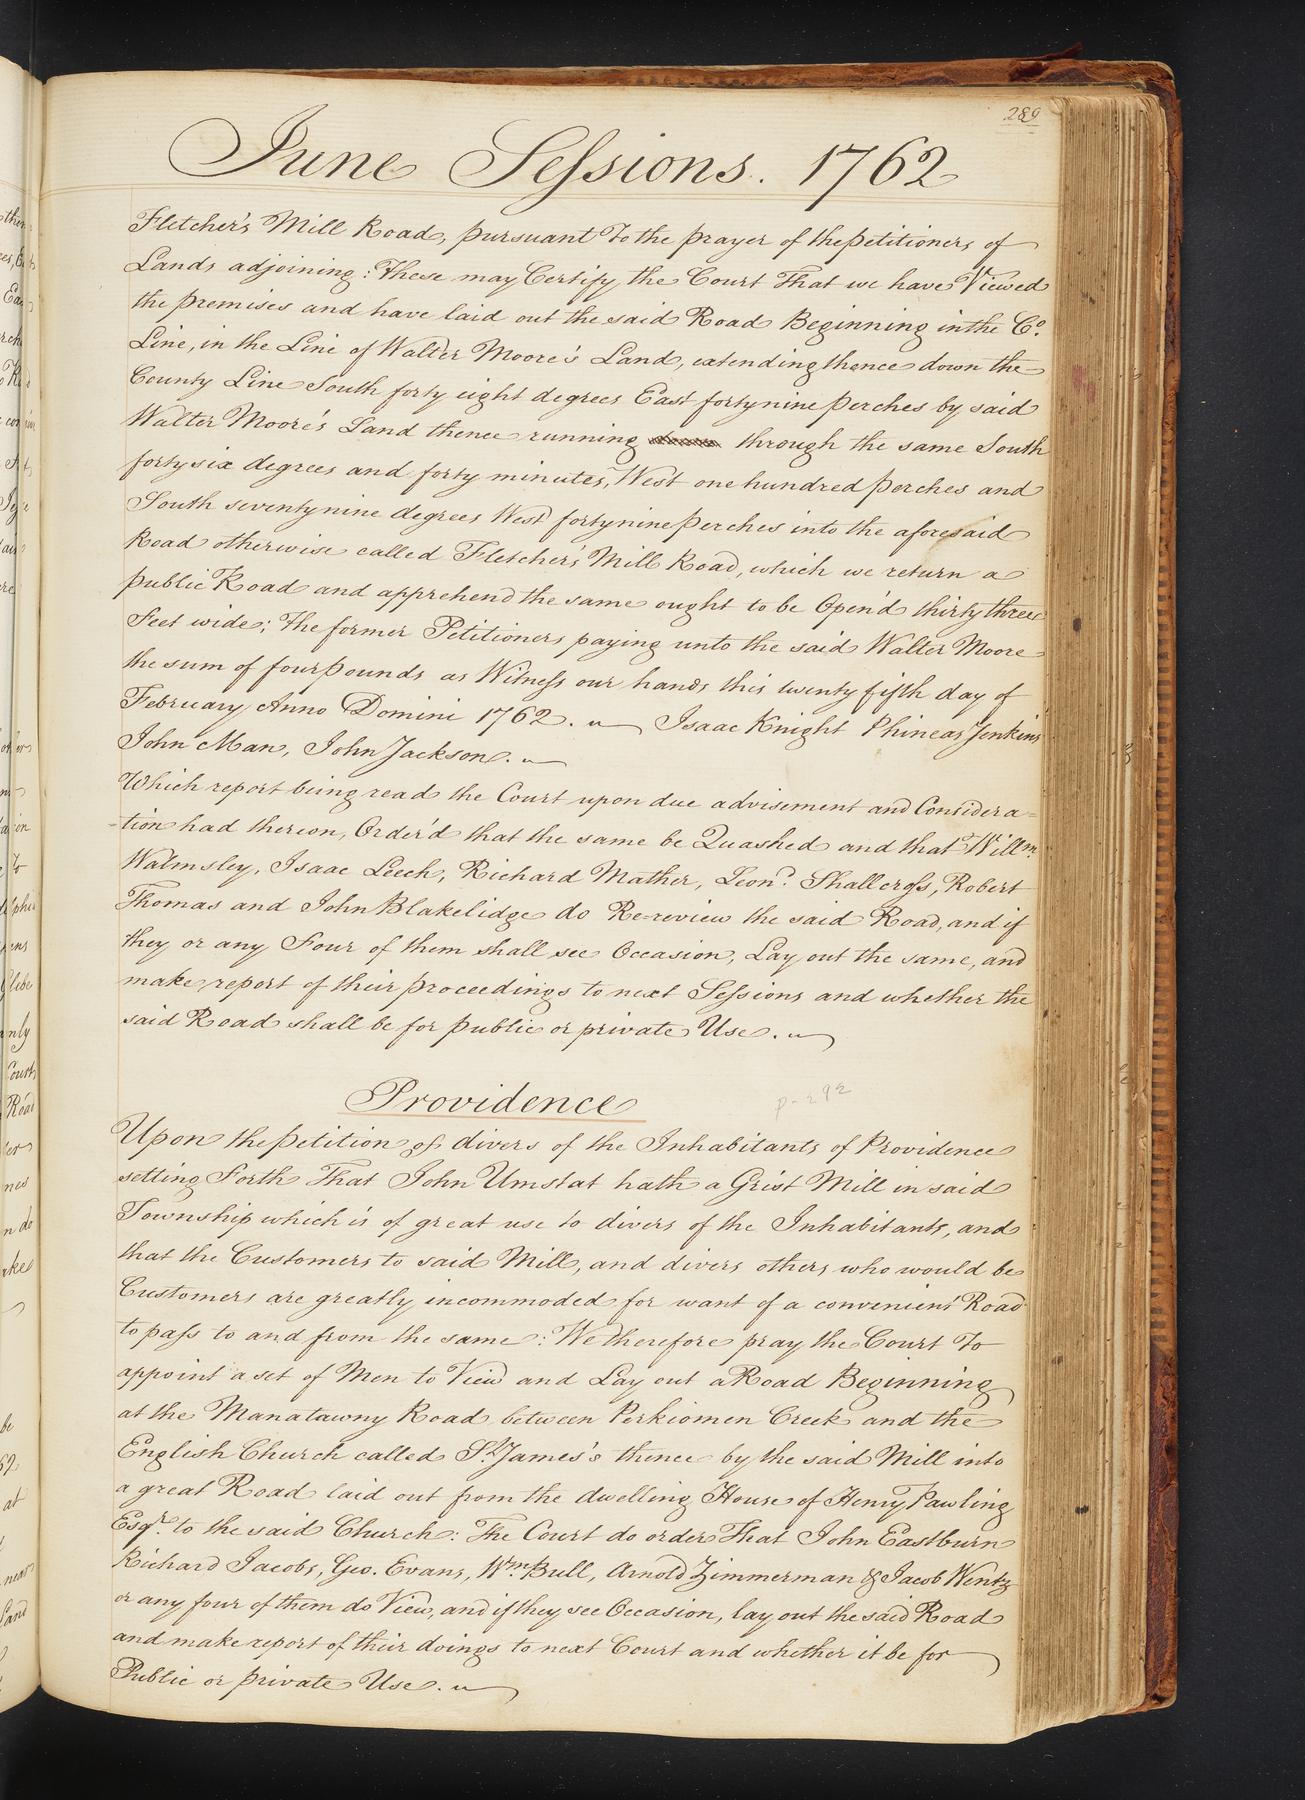 289
June Sessions. 1762
Fletcher's Mill Road, pursuant To the prayer of the petitioners of
Lands adjoining: These may Certify the Court That we have Viewed
the premises and have laid out the said Road Beginning in the Co.
Line, in the Line of Walter Moore's Land, extending thence down the
County Line South forty eight degrees East forty nine perches by said
Walter Moore's Land thence running through the same South
forty six degrees and forty minutes, West one hundred perches and
South seventy nine degrees West forty nine perches into the aforesaid
Road otherwise called Fletcher's Mill Road, which we return a
public Road and apprehend the same ought to be Open'd thirty three
Feet wide; The former Petitioners paying unto the said Walter Moore
the sum of four pounds as Witness our hands this twenty fifth day of
February Anno Domini 1762. Isaac Knight Phineas Jenkins
John Man, John Jackson.
Which report being read the Court upon due advisement and Considera=
-tion had thereon, Order'd that the same be Quashed and that Willm.
Walmsley, Isaac Leech, Richard Mather, Leond. Shallcross, Robert
Thomas and John Blakelidge do Re-review the said Road, and if
they or any Four of them shall see Occasion, Lay out the same, and
make report of their proceedings to next Sessions and whether the
said Road shall be for public or private Use.
Providence
p-292
Upon the petition of divers of the Inhabitants of Providence
setting Forth That John Umstat hath a Grist Mill in said
Township which is of great use to divers of the Inhabitants, and
that the Customers to said Mill, and divers others who would be
Customers are greatly incommoded for want of a convenient Road
to pass to and from the same: We therefore pray the Court To
appoint a set of Men to View and Lay out a Road Beginning
at the Manatawny Road between Perkiomen Creek and the
English Church called St. James's thence by the said Mill into
a great Road laid out from the dwelling House of Henry Pawling
Esqr. to the said Church: The Court do order That John Eastburn
Richard Jacobs, Geo. Evans, Wm. Bull, Arnold Zimmerman & Jacob Wentz
or any four of them do View, and if they see Occasion, lay out the said Road
and make report of their doings to next Court and whether it be for
Public or private Use.